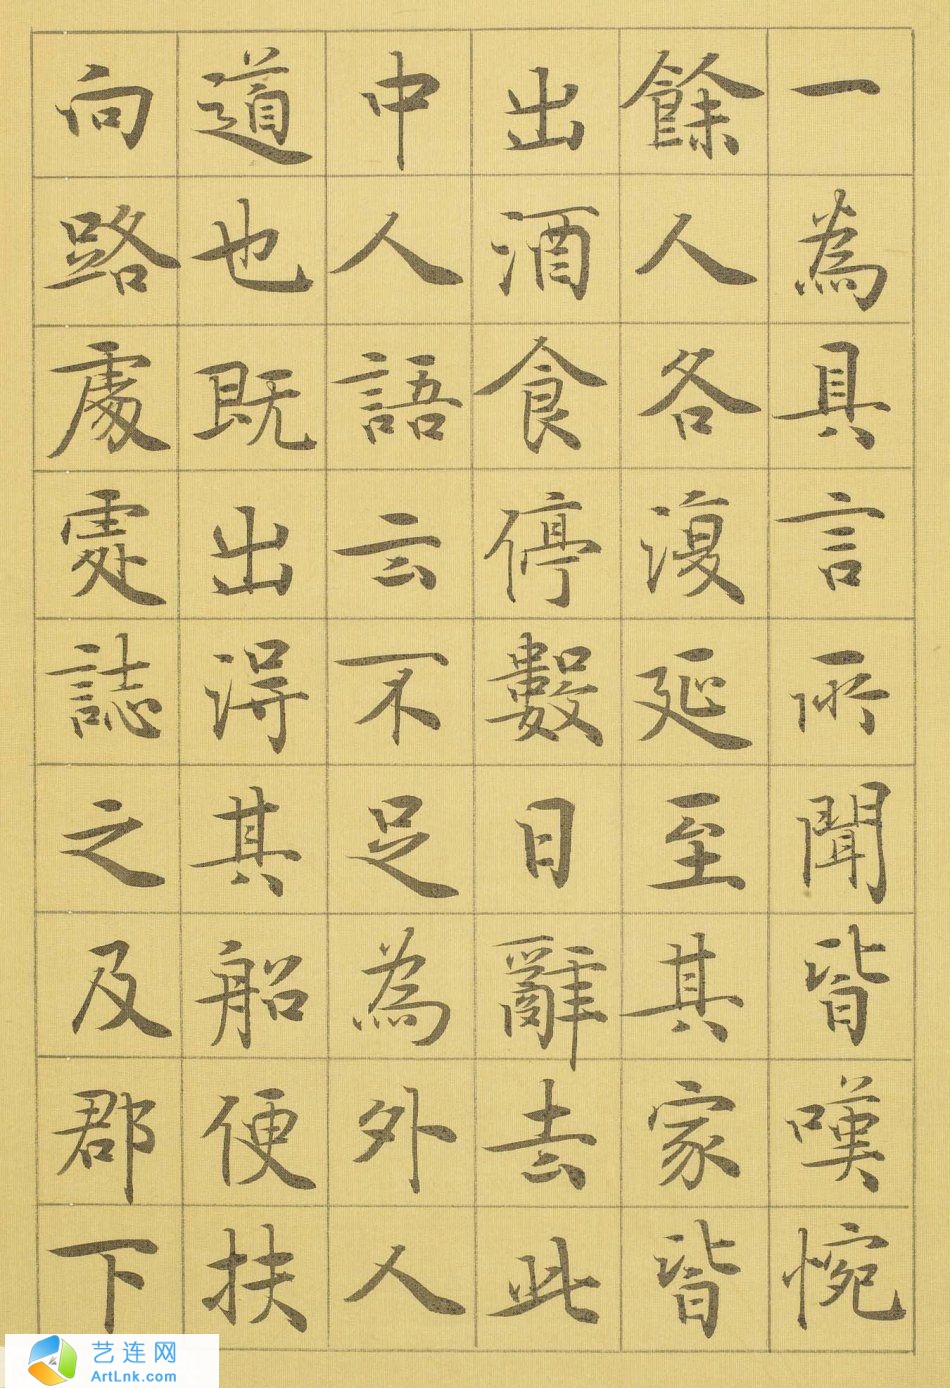 一為具言所聞皆嘆惋
餘人各復延至其家皆
出酒食停數日辭去此
中人語云不足為外人
道也既出得其船便扶
向路處處誌之及郡下
艺连网
ArtLnk.com